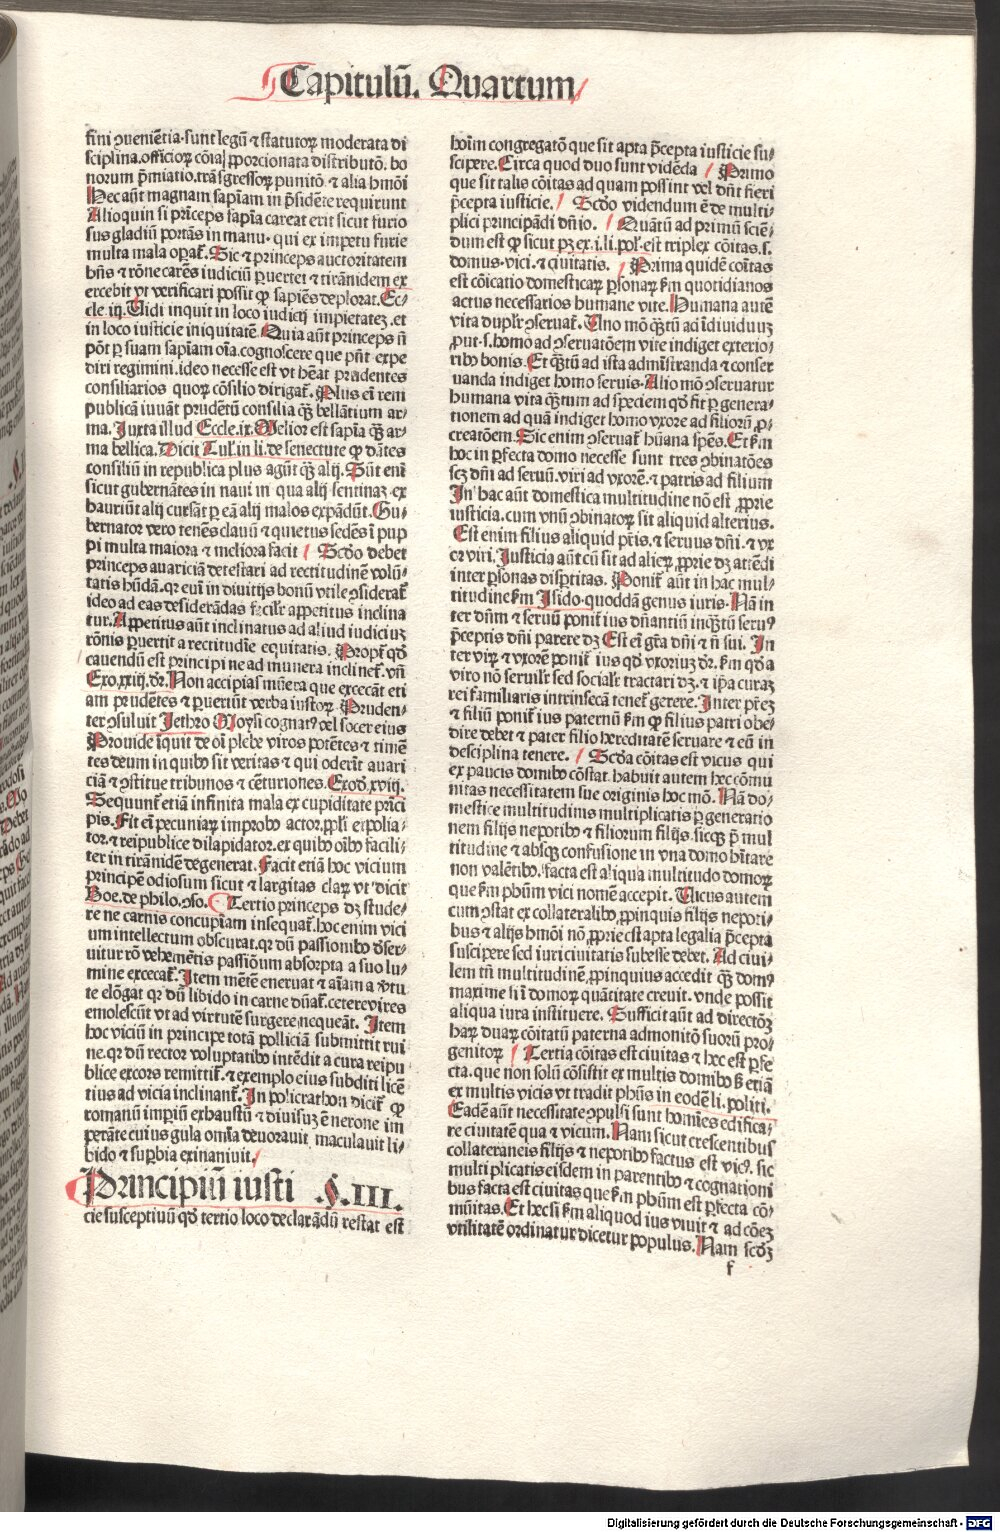 Capitulū. Quartum
fini ꝯueniētia. sunt legū ⁊ statutoꝝ moderata di
sciplina. officioꝝ cōia ꝓporcionata distributō. bo
norum p̄miatio. trāsgressoꝝ punitō. ⁊ alia hm̄oi
Hec aūt magnam sapiam in p̄sidēte requirunt
Alioquin si prīceps sapīa careat erit sicut furio
sus gladiū portās in manu. qui ex impetu furie
multa mala opat᷑. Sic ⁊ princeps auctoritatem
hn̄s ⁊ rōne carēs iudiciū ꝑuertet ⁊ tirānidem ex
ercebit vt verificari possit ꝙ sapiēs deplorat. Ec-
cle. iij. Vidi inquit in loco iudicij impietatez. et
in loco iusticie iniquitatē. Quia aūt princeps n̄
pōt ꝑ suam sapīam oīa. cognoscere que pn̄t expe
diri regimini. ideo necesse est vt hēat prudentes
consiliarios quoꝝ cōsilio dirigat᷑. Plus eī rem
publicā iuuāt prudētū consilia qꝫ bellātium ar-
ma. Juxta illud Eccle. ix. Melior est sapīa qꝫ ar-
ma bellica. Dicit Tul. in li. de senectute ꝙ dātes
consiliū in republica plus agūt qꝫ alij. Sūt enī
sicut gubernātes in naui in qua alij sentinaz ex
hauriūt alij cursāt ꝑ eā alij malos expādūt. Gu-
bernator vero tenēs clauū ⁊ quietus sedēs ī pup
pi multa maiora ⁊ meliora facit / Scd̄o debet
princeps auariciā detestari ad rectitudinē volū-
tatis hn̄dā. qꝛ euī in diuitijs bonū vtile ꝯsiderat᷑
ideo ad eas desiderādas facilr̄ appetitus inclina
tur. Appetitus aūt inclinatus ad aliud iudiciuz
rōnis ꝑuertit a rectitudīe equitatis. Propt᷑ qd̄
cauendū est principi ne ad munera inclinet᷑. vn̄
Exo. xxiij. dr̄. Non accipias mūera que excecāt eti
am prudētes ⁊ ꝑuertūt verba iustoꝝ. Pruden-
ter ꝯsuluit Jethro Moysi cognatꝰ vel socer eius
Prouide īquit de oī plebe viros potētes ⁊ timē
tes deum in quibꝰ sit veritas ⁊ qui oderīt auari
ciā ⁊ ꝯstitue tribunos ⁊ cēturiones. Exod. xviij.
Sequunt᷑ etiā infinita mala ex cupiditate prīci
pis. Fit eī pecuniaꝝ improbꝰ actor. ppl̄i expolia-
tor. ⁊ reipublice dilapidator. ex quibꝰ oībꝰ facili-
ter in tirānidē degenerat. Facit etiā hoc vicium
principē odiosum sicut ⁊ largitas claꝝ vt dicit
Boe. de philo. ꝯso. Tertio princeps dꝫ stude-
re ne carnis concupīam insequat᷑. hoc enim vici
um intellectum obscurat. qꝛ dū passionibꝰ ꝯser-
uitur rō vehemētis passiōum absorpta a suo lu-
mine excecat᷑. Item mētē eneruat ⁊ aīam a v̄tu
te elōgat qꝛ dū libido in carne dn̄at᷑. cetere vires
emolescūt vt ad virtutē surgere nequeāt. Item
hoc viciū in principe totā policiā submittit rui
ne. qꝛ dū rector voluptatibꝰ intēdit a cura reipu
blice excors remittit᷑. ⁊ exemplo eius subditi licē
tius ad vicia inclinant᷑. In policrathon dicit᷑ ꝙ
romanū imperiū exhaustū ⁊ diuisuz ē nerone im
perāte cuius gula omīa deuorauit. maculauit li-
bido ⁊ suꝑbia exinaniuit.
Principiū iusti §. III.
cie susceptiuū qd̄ tertio loco declarādū restat est
hoīm congregatō que sit apta p̄cepta iusticie su-
scipere. Circa quod duo sunt vidēda / Primo
que sit talis cōitas ad quam possint vel dn̄t fieri
p̄cepta iusticie. / Scd̄o videndum ē de multi-
plici principādi dn̄io. / Quātū ad primū sciē-
dum est ꝙ sicut pꝫ ex. i. li. pol. est triplex cōitas. s.
domus. vici. ⁊ ciuitatis. / Prima quidē coītas
est cōicatio domesticaꝝ ꝑsonaꝝ km̄ quotidianos
actus necessarios humane vite. Humana autē
vita duplr̄ ꝯseruat᷑. Uno mō qꝫtū ad īdiuiduuz
ꝓut. s. homo ad ꝯseruatōem vite indiget exterio-
ribꝰ bonis. Et qꝫtū ad ista admīstranda ⁊ conser
uanda indiget homo seruis. Alio mō ꝯseruatur
humana vita qꝫtum ad speciem qd̄ fit ꝑ genera-
tionem ad quā indiget homo vxore ad filioꝝ ꝓ-
creatōem. Sic enim ꝯseruat᷑ hūana spēs. Et km̄
hoc in ꝑfecta domo necesse sunt tres ꝯbinatōes
scꝫ dn̄i ad seruū. viri ad vxorē. ⁊ patris ad filium
In hac aūt domestica multitudine nō est ꝓprie
iusticia. cum vnū ꝯbinatoꝝ sit aliquid alterius.
Est enim filius aliquid pr̄is. ⁊ seruus dn̄i. ⁊ vx
or viri. Justicia aūt cū sit ad alieꝝ ꝓprie dꝫ attēdi
inter ꝑsonas disꝑitas. Ponit᷑ aūt in hac mul-
titudine km̄ Isido. quoddā genus iuris. Nā in
ter dn̄m ⁊ seruū ponit᷑ ius dn̄antiū inqꝫtū seruꝰ
p̄ceptis dn̄i parere dꝫ Est eī grā dn̄i ⁊ n̄ sui. In
ter viꝝ ⁊ vxorē ponit᷑ ius qd̄ vxoriuz dr̄. km̄ qd̄ a
viro nō seruilr̄ sed socialr̄ tractari dꝫ. ⁊ ip̄a curaz
rei familiaris intrinsecā tenet᷑ gerere. Inter pr̄ez
⁊ filiū ponit᷑ ius paternū km̄ ꝙ filius patri obe-
dire debet ⁊ pater filio hereditatē seruare ⁊ eū in
desciplina tenere. / Scd̄a cōitas est vicus qui
ex paucis domibꝰ cōstat. habuit autem hec cōmu
nitas necessitatem sue originis hoc mō. Nā do-
mestice multitudinis multiplicatis ꝑ generatio
nem filijs nepotibꝰ ⁊ filiorum filijs. sicqꝫ p̄ mul
titudine ⁊ absqꝫ confusione in vna domo hītare
non valētibꝰ. facta est aliqua multitudo domoꝝ
que km̄ phūm vici nomē accepit. Vicus autem
cum ꝯstat ex collateralibꝰ. ꝓpinquis filijs nepoti-
bus ⁊ alijs hm̄oi nō ꝓprie est apta legalia p̄cepta
suscipere sed iuri ciuitatis subesse debet. Ad ciui-
lem tn̄ multitudinē ꝓpinquius accedit qꝫ domꝰ
maxime si ī domoꝝ quātitate creuit. vnde possit
aliqua iura instituere. Sufficit aūt ad directōꝫ
haꝝ duaꝝ cōitatū paterna admonitō suorū pro-
genitoꝝ / Tertia cōitas est ciuitas ⁊ hec est ꝑfe
cta. que non solū cōsistit ex multis domibꝰ ꝫ etiā
ex multis vicis vt tradit phūs in eodē li. politi.
Eadē aūt necessitate ꝯpulsi sunt homīes edifica-
re ciuitatē qua ⁊ vicum. Nam sicut crescentibus
collateraneis filijs ⁊ nepotibꝰ factus est vicꝰ. sic
multiplicatis eisdem in parentibꝰ ⁊ cognationi
bus facta est ciuitas que km̄ phūm est ꝑfecta cō-
mūitas. Et hec si km̄ aliquod ius viuit ⁊ ad cōez
vtilitatē ordinatur dicetur populus. Nam scd̄ꝫ
f
Digitalisierung gefördert durch die Deutsche Forschungsgemeinschaft - DFG